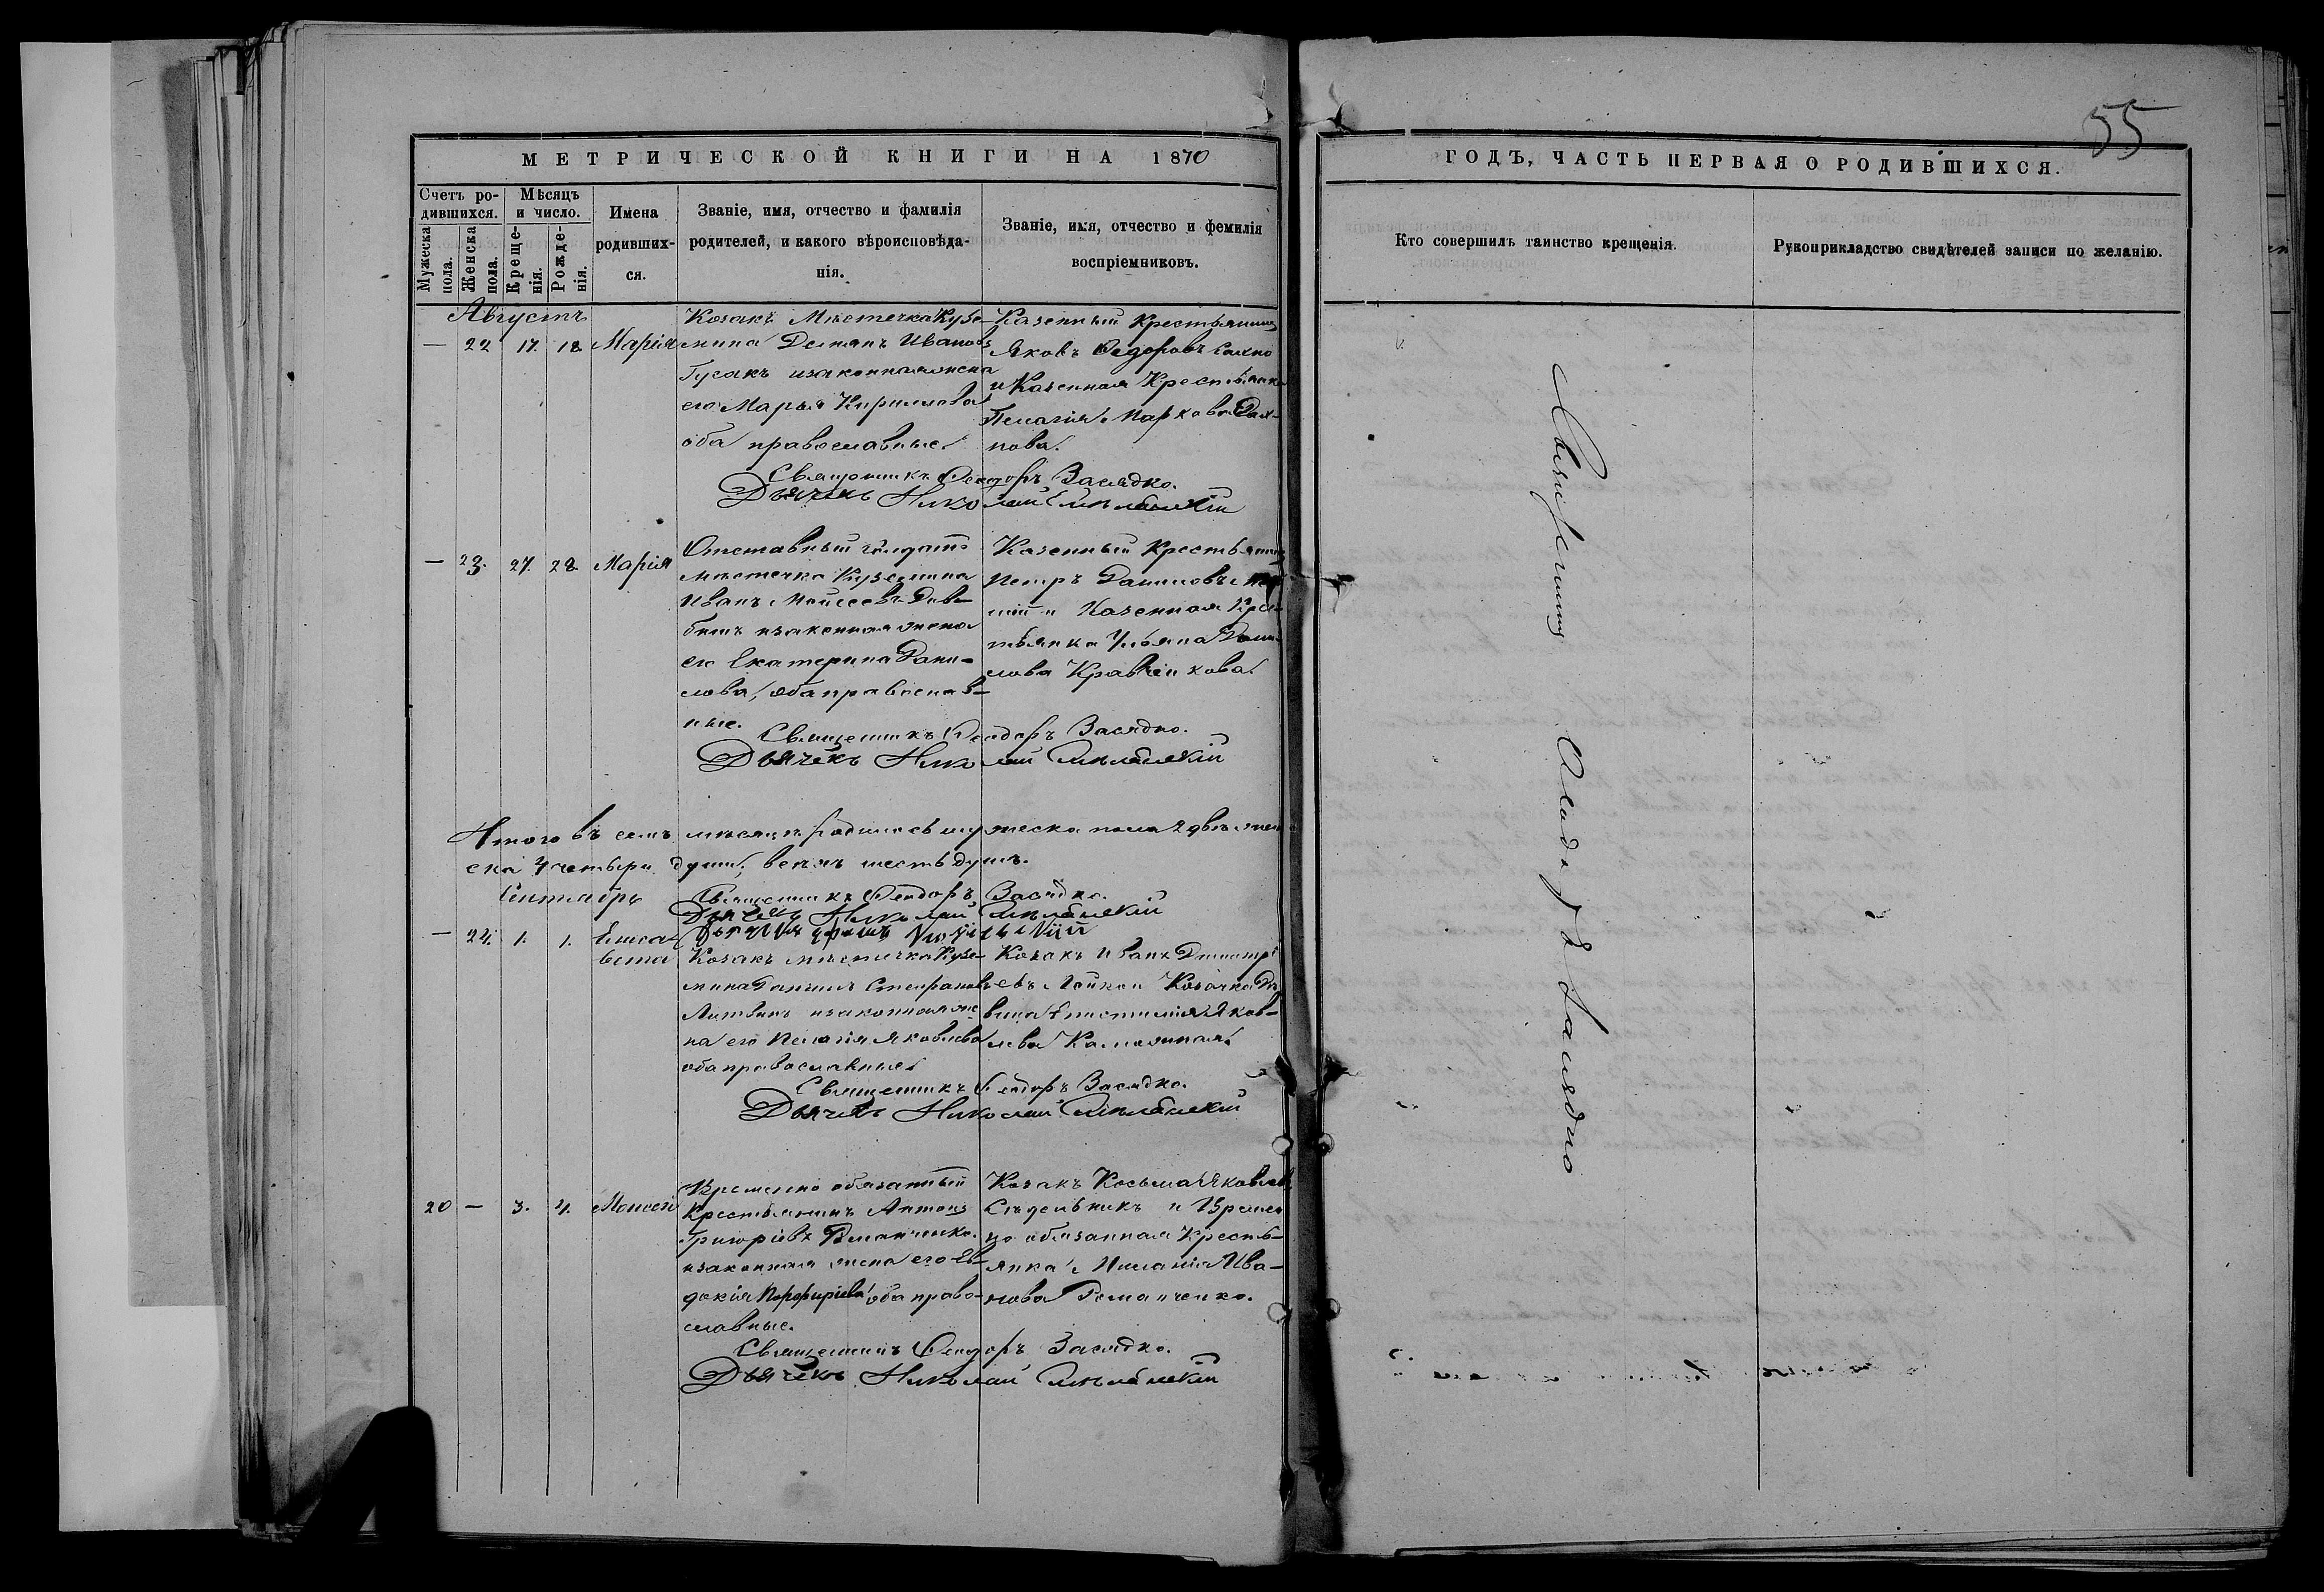 55
МЕТРИЧЕСКОЙ КНИГИ НА 1870
ГОДЪ, ЧАСТЬ ПЕРВАЯ О РОДИВШИХСЯ.
Счетъ ро-
дившихся.
Мужеска
пола.
Женска
пола.
Мѣсяцъ
и число.
Креще-
нія.
Рожде-
нія.
Имена
родивших-
ся.
Званіе, имя, отчество и фамилія
родителей, и какого вѣроисповѣда-
нія.
Званіе, имя, отчество и фемилія
воспріемниковъ.
Кто совершилъ таинство крещенія.
Рукоприкладство свидѣтелей записи по желанію.
Августъ
— 22 17. 18 Марія
Козакъ Мѣстечка Кузе-
мина Демянъ Ивановъ
Гусакъ изаконная жена
его Марья Кирилова
оба православные.
Казенный Крестьянинъ
Яковъ Федоровъ
и Казенная Крестьянка
Пелагія Маркова
нова.
Священникъ Феодоръ Засядко.
Дьячекъ Николай
— 23. 27. 28 Марія
Отставный солдатъ
мѣстечка Куземина
Иванъ Моисеевъ
изаконная жена
его Екатерина Дани-
лова, оба православ-
ные.
Казенный Крестьянинъ
Петръ Даниловъ
и Казенная Крес-
тьянка Ульяна Дани-
лова Кравченкова
Священникъ Феодоръ Засядко.
Дьячекъ Николай
Итого въ семъ мѣсяцѣ родилось мужеска пола 2 двѣ жен
ска 4 четыри души, всѣхъ шесть душъ.
Сентябрь
Священникъ Феодоръ Засядко.
Дьячекъ Николай
— 24. 1. 1. Елиса-
вета
Козакъ мѣстечка Кузе-
мина Даніилъ Стефановъ
Литвинъ изаконная же
на его Пелагія Яковлева
оба православные
Козакъ Иванъ Димитрі
евъ и Козачка Дѣ
вица Яков-
лева
Священникъ Феодоръ Засядко.
Дьячекъ Николай
20 — 3. 4. Моисей
Временно обязанный
Крестьянинъ Антонъ
Григоріевъ Романченко.
изаконная жена его Ев-
докія Порфиріева оба право-
славные.
Козакъ Косьма Яковлевъ
Сѣдельникъ и Времен
но обязанная Кресть-
янка Меланія Ива-
нова Романченко.
Священникъ Феодоръ Засядко.
Дьячекъ Николай
Священникъ Феодоръ Засядко